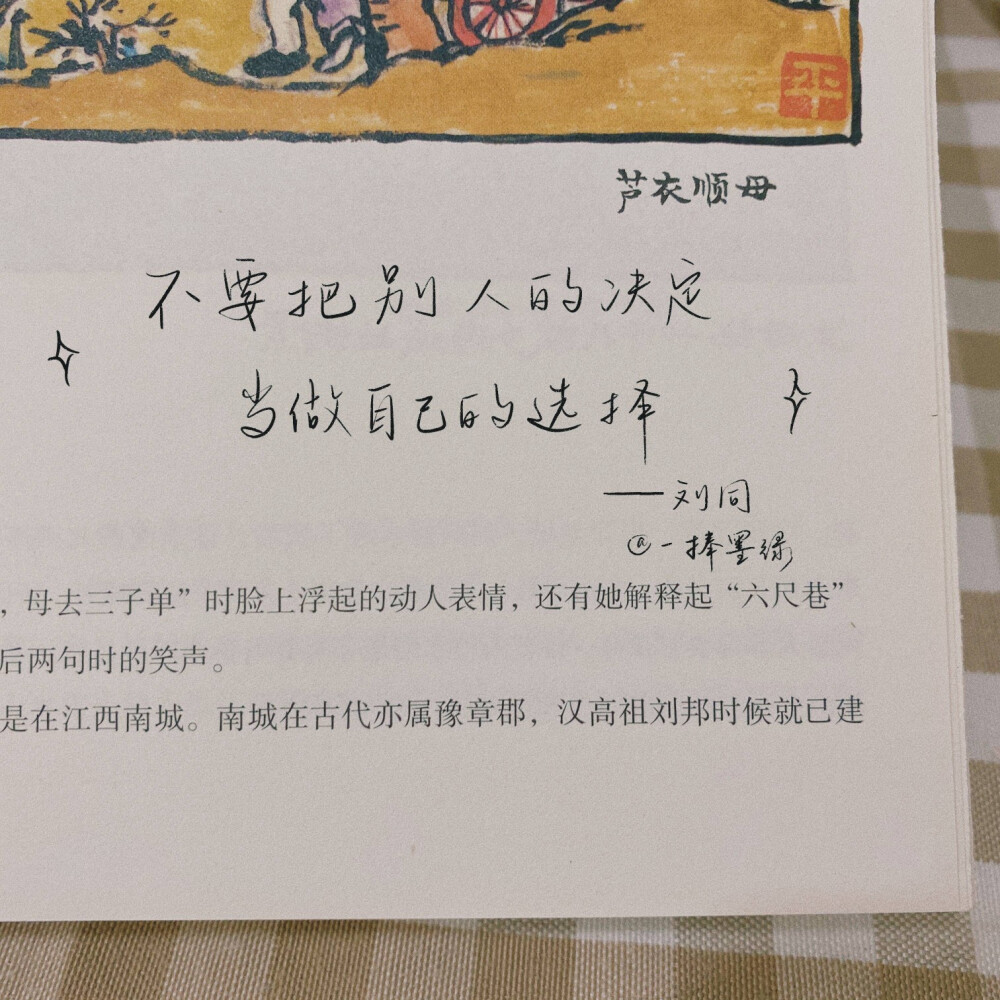 平
芦衣顺母
不要把别人的决定
当做自己的选择
——刘同
@一捧墨绿
，母去三子单”时脸上浮起的动人表情，还有她解释起“六尺巷”
后两句时的笑声。
是在江西南城。南城在古代亦属豫章郡，汉高祖刘邦时候就已建